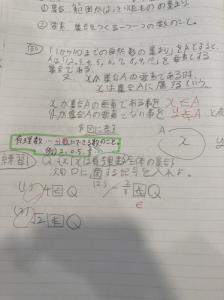 ① 集合 範囲がはっきりしたものの集まり.
② 要素 集合をつくる一つ一つのもののこと。
例 「1から10までの自然数の集まり」をAとすると、
Aは1,2,3,4,5,6,7,8,9,10を要素とする
集合である。
xが集合Aの要素であるとき、
xは集合Aに属するという。
xが集合Aの要素である事を x∈A
xが集合Aの要素でない事を x∉A
A
x
有理数…分数にできる数のこと。
例) 3, 0.5,
練習 Q={x|xは有理数全体の集合}
次の□に適する記号を入れよ。
(1) 4 ∈ Q
(2) Q
∈
(3) √2 ∉ Q